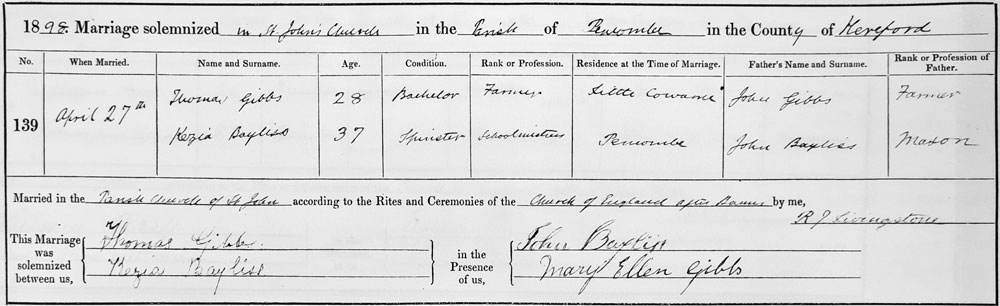 1898. Marriage solemnized in St John's Church in the Parish of Pencombe in the County of Hereford
No. When Married. Name and Surname. Age. Condition. Rank or Profession. Residence at the Time of Marriage. Father's Name and Surname. Rank or Profession of Father.
139 April 27th Thomas Gibbs 28 Bachelor Farmer Little Cowarne John Gibbs Farmer
Kezia Bayliss 37 Spinster Schoolmistress Pencombe John Bayliss Mason
Married in the Parish Church of St John according to the Rites and Ceremonies of the Church of England after Banns by me,
R J Livingstone
This Marriage was solemnized between us, Thomas Gibbs. in the Presence of us, John Bayliss
Kezia Bayliss Mary Ellen Gibbs